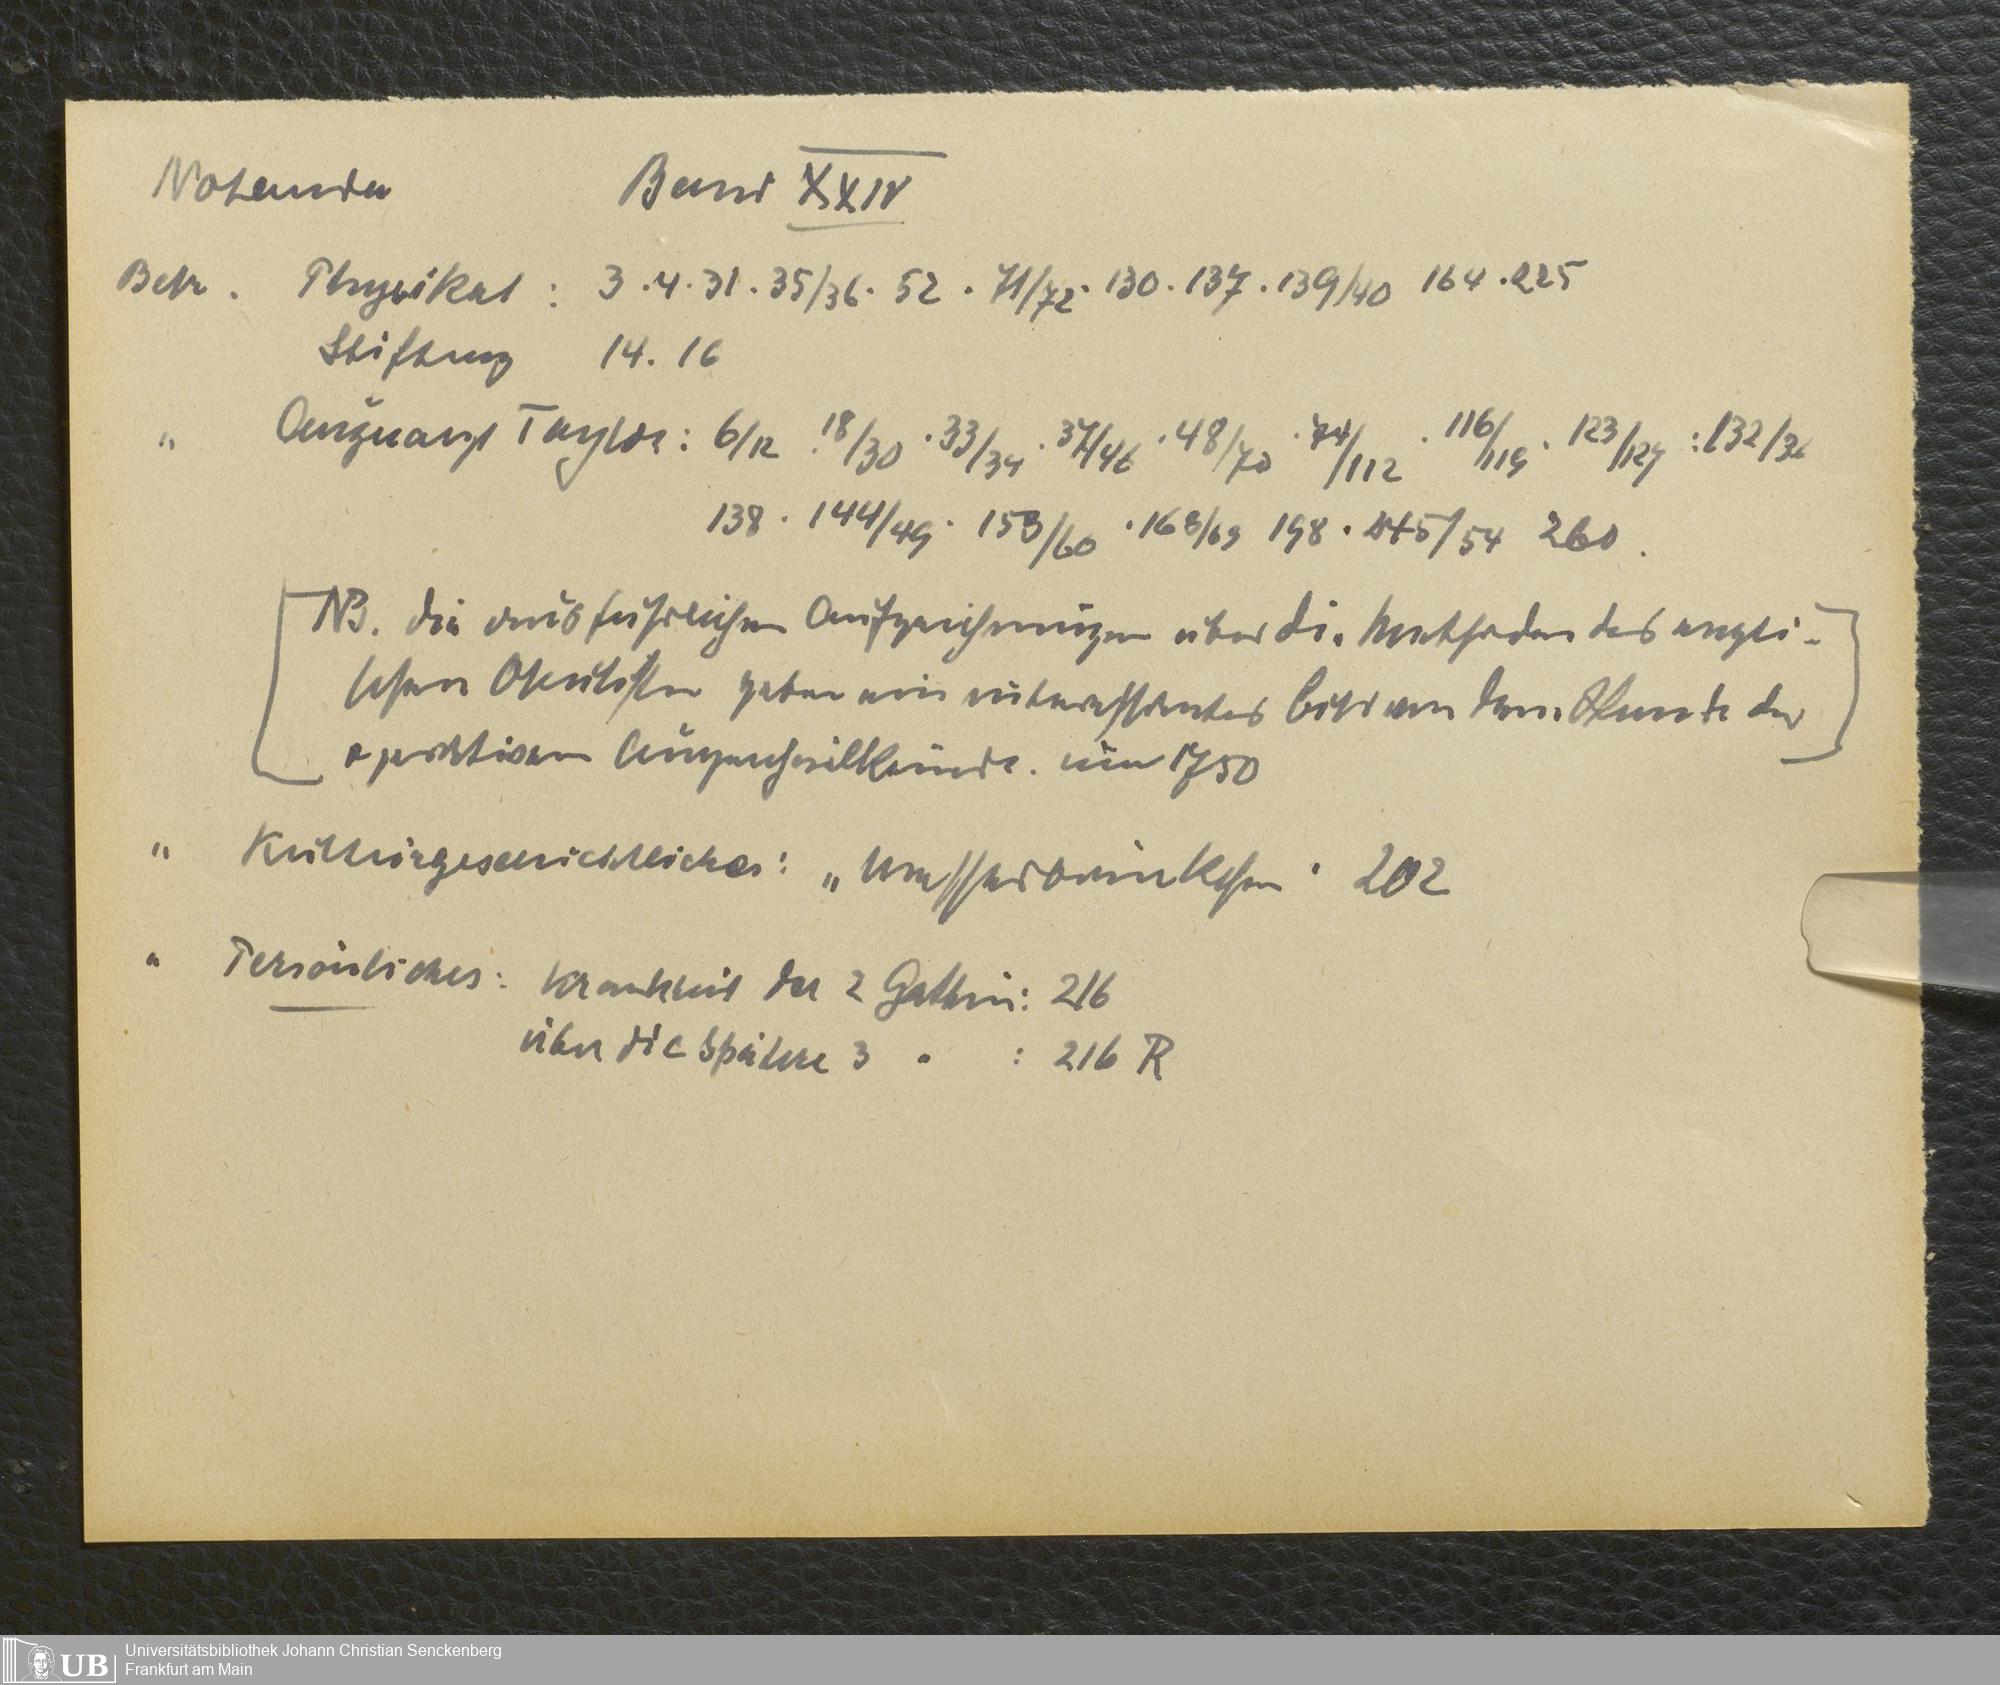 Notanda Band XXIV
Betr. Physikat : 3 . 4 . 31 . 35/36 . 52 . 71/72 . 130 . 137 . 139/40 164 . 225
Stiftung 14. 16
" Augenarzt Taylor : 6/12 . 18/30 . 33/34 . 37/46 . 48/70 . 74/112 . 116/119 . 123/127 : 132/36
138 . 144/49 . 153/60 . 168/69 198 . 245/54 260 .
NB. die ausführlichen Aufzeichnungen über die Methoden des engli-
schen Okulisten geben ein interessantes Bild von dem Stande der
operativen Augenheilkunde . um 1750
" Kulturgeschichtliches : „ Wasserbrünnchen " 202
" Persönliches : Krankheit der 2 Gattin : 216
über die spätere 3 " : 216 R
UB
Universitätsbibliothek Johann Christian Senckenberg
Frankfurt am Main